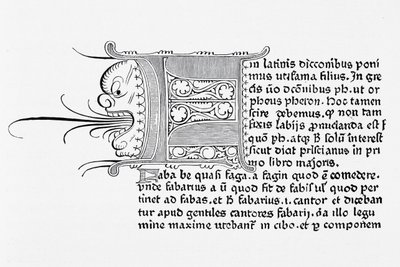 in latinis dicconibus poni
mus ut fama filius. In gre
cis ūo dc̄onibus ph. ut or
pheus pheron. Hoc tamen
scire debemus. ꝙ non tam
fixis labijs ꝓnuclanda est f
quō ph. atqꝫ B solum̄ interest
sicut dicit priscianus in pri
mo libro majoris.
Faba be quasi faga. a fagin quod ē comedere.
vnde fabarius a ū quod fit de fabis ul̓ quod per
tinet ad fabas. et B fabarius. i. cantor et diceban
tur apud gentiles cantores fabarij. q̄a illo legu
mine maxime utebant̄ in cibo. et ꝑ componem